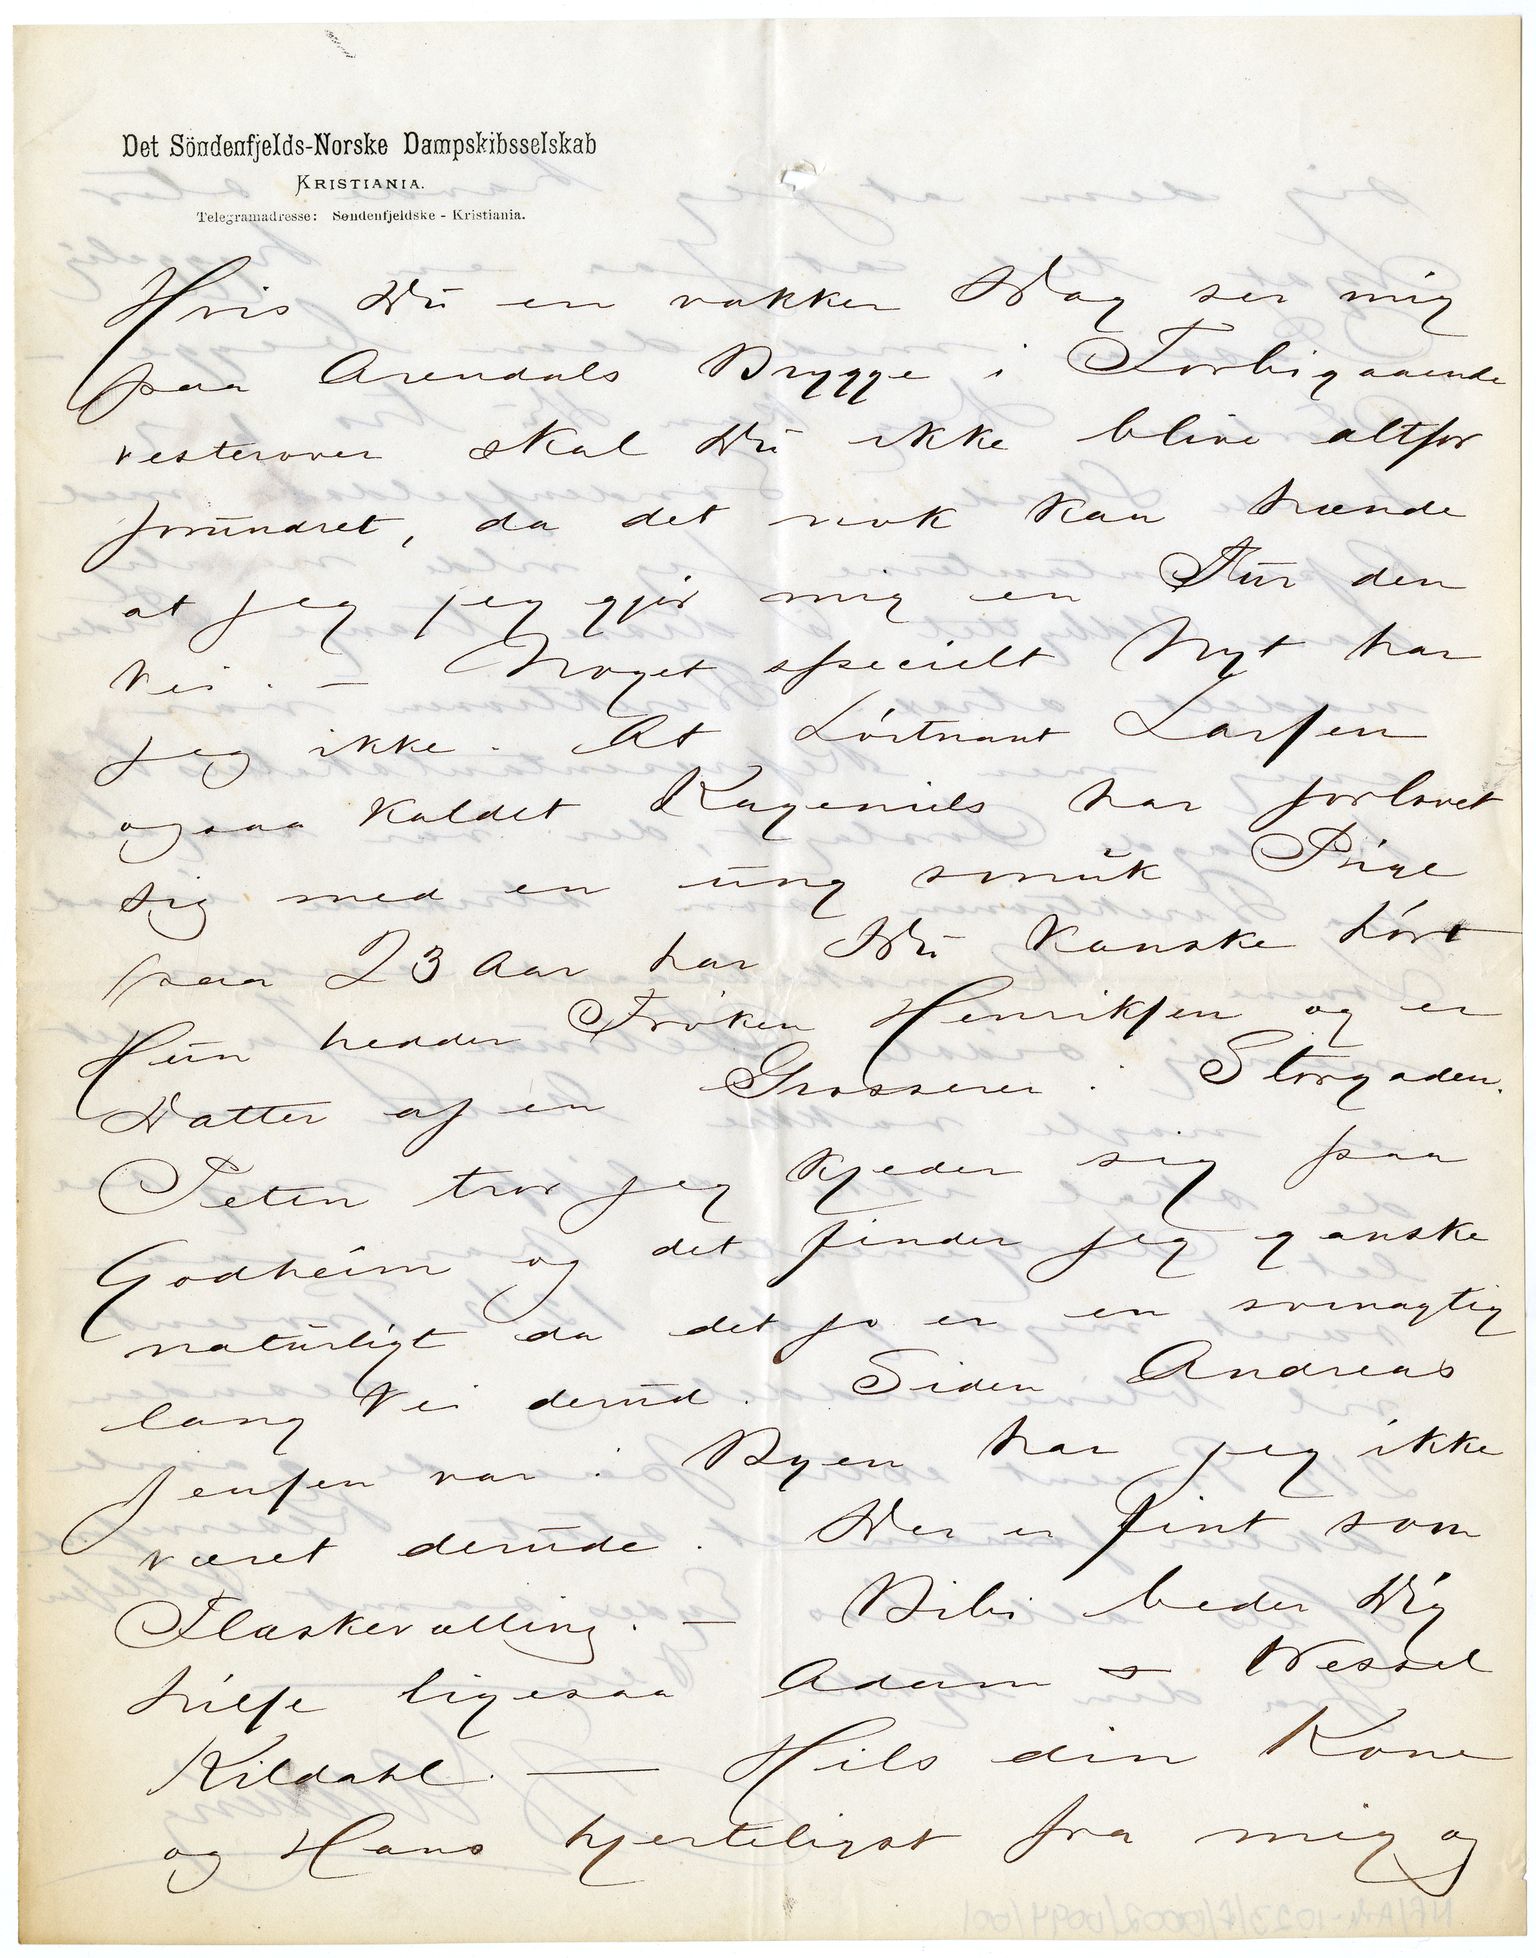 Det Söndenfjelds-Norske Dampskibsselskab
KRISTIANIA.
Telegramadresse: Søndenfjeldske - Kristiania.
Hvis Du en vakker Dag ser mig
paa Arendals Brygge i Forbigaaende
vesterover skal Du ikke blive altfor
forundret, da det nok kan hænde
at jeg jeg gjör mig en Tur den
Vei. — Noget specielt Nyt har
jeg ikke. At Löitnant Larsen
ogsaa kaldet Kageniels har forlovet
sig med en ung smuk Pige
paa 23 Aar har Du kanske hört
Hun hedder Fröken Henriksen og er
Datter af en Grosserer i Storgaden.
Peter tror jeg kjeder sig paa
Godheim og det finder jeg ganske
naturligt da det jo er en svinagtig
lang Vei derud. Siden Andreas
Jensen var i Byen har jeg ikke
været derude. Der er fint som
Flaskevælling. — Bibi beder Dig
hilse ligesaa Adam Wessel
Kildahl. — Hils din Kone
og Hans hjerteligst fra mig og